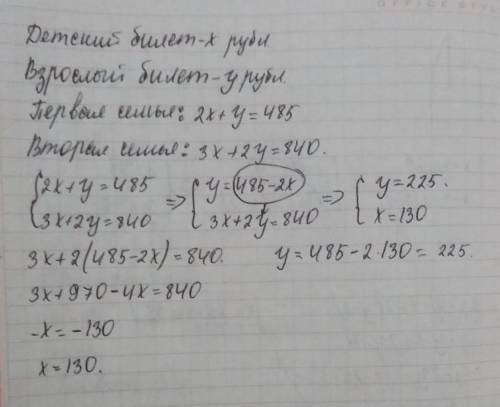 Детский билет-x рубл.
Взрослый билет-y рубл.
Первая семья: 2x+y=485
Вторая семья: 3x+2y=840.
{2x+y=485 => {y=485-2x => {y=225.
{3x+2y=840 {3x+2y=840 {x=130
3x+2(485-2x)=840. y=485-2·130=225.
3x+970-4x=840
-x=-130
x=130.